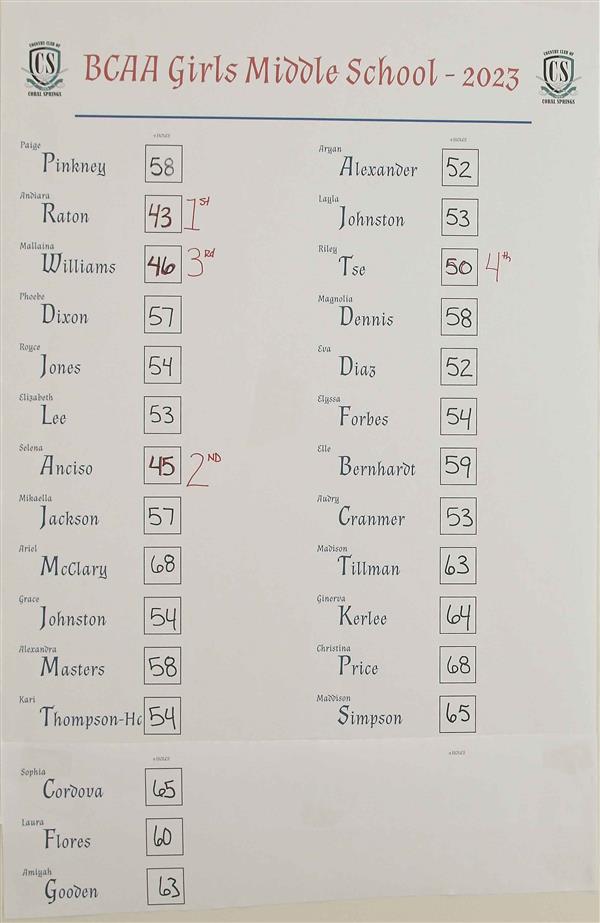 COUNTRY CLUB OF
CS
CORAL SPRINGS
BCAA Girls Middle School - 2023
COUNTRY CLUB OF
CS
CORAL SPRINGS
Paige
Pinkney 58
Andiara
Raton 43 1st
Mallaina
Williams 46 3rd
Phoebe
Dixon 57
Royce
Jones 54
Elizabeth
Lee 53
Selena
Anciso 45 2ND
Mikaella
Jackson 57
Ariel
McClary 68
Grace
Johnston 54
Alexandra
Masters 58
Kari
Thompson-Ho 54
Sophia
Cordova 65
Laura
Flores 60
Amiyah
Gooden 63
Aryan
Alexander 52
Layla
Johnston 53
Riley
Tse 50 4th
Magnolia
Dennis 58
Eva
Diaz 52
Elyssa
Forbes 54
Elle
Bernhardt 59
Audry
Cranmer 53
Madison
Tillman 63
Ginerva
Kerlee 64
Christina
Price 68
Maddison
Simpson 65